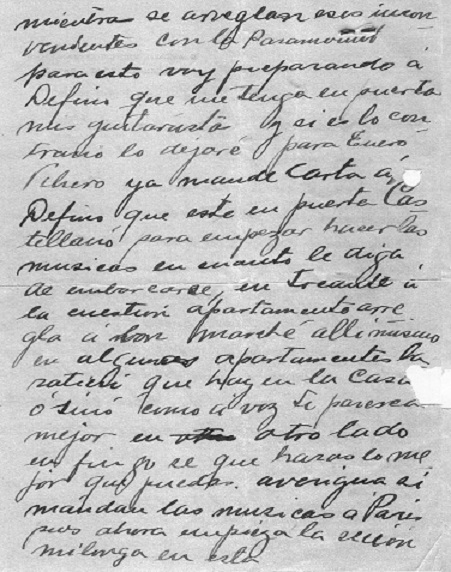 mientra se arreglan esos incon
venientes con la Paramount
para esto voy preparando á
Defino que me tenga en puerta
mis guitarrista y si es lo con
trario lo dejaré para Enero
Febrero ya mandé Carta á
Defino que este en puerta Cas
tellano para empezar hacer las
musicas en cuanto le diga
de embarcarse, en trcante á
la cuestion apartamento arre
gla á bon marché alli mismo
en algunos apartamentes ba
ratieri que hay en la Casa
ó sinó como á voz te paresca
mejor en otro lado
en fin yo se que haras lo me
jor que puedas. averigua si
mandan las musicas a Paris
pues ahora empieza la
milonga en esta